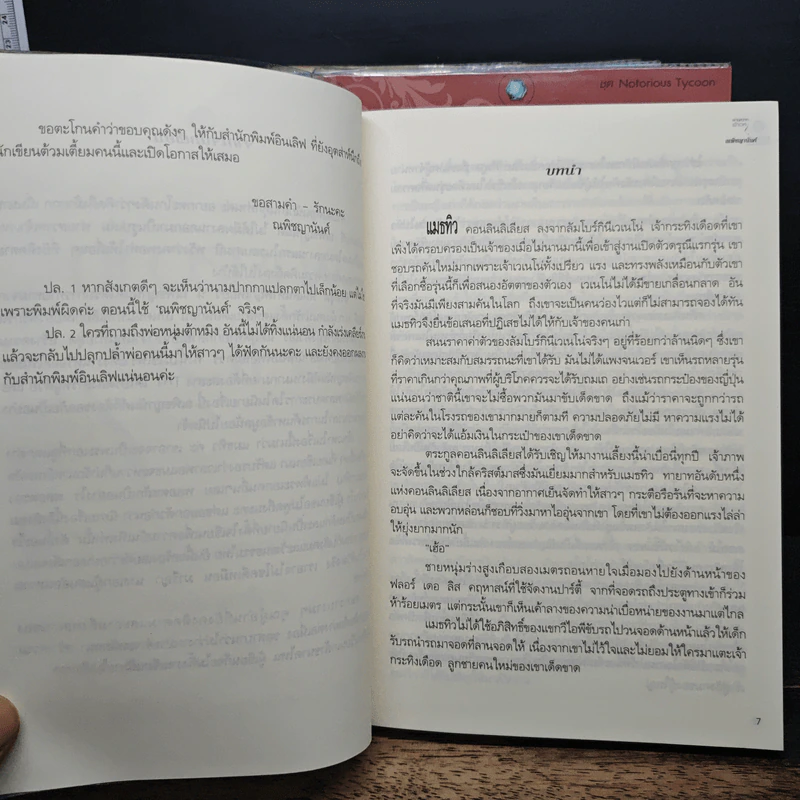 ขอตะโกนคำว่าขอบคุณดังๆ ให้กับสำนักพิมพ์อินเลิฟ ที่ยังอุตส่าห์นึกถึง
นักเขียนต้วมเตี้ยมคนนี้และเปิดโอกาสให้เสมอ
ขอสามคำ – รักนะคะ
ณพิชญานันศ์
ปล. 1 หากสังเกตดีๆ จะเห็นว่านามปากกาแปลกตาไปเล็กน้อย แต่ไม่ใช่
เพราะพิมพ์ผิดค่ะ ตอนนี้ใช้ 'ณพิชญานันศ์' จริงๆ
ปล. 2 ใครที่ถามถึงพ่อหนุ่มต้าหมิง อันนี้ไม่ได้ทิ้งแน่นอน กำลังเร่งเคลียร์
แล้วจะกลับไปปลุกปล้ำพ่อคนนี้มาให้สาวๆ ได้ฟัดกันนะคะ และยังคงออก
กับสำนักพิมพ์อินเลิฟแน่นอนค่ะ
ชุด Notorious Tycoon
ณพิชญานันศ์
บทนำ
แมธทิว คอลนลินลิเลียส ลงจากลัมโบร์กินีเวเนโน่ เจ้ากระทิงเดือดที่เขา
เพิ่งได้ครอบครองเป็นเจ้าของเมื่อไม่นานมานี้เพื่อเข้าสู่งานเปิดตัวดรุณีแรกรุ่น เขา
ชอบรถคันใหม่มากเพราะเจ้าเวเนโน่ทั้งเปรียว แรง และทรงพลังเหมือนกับตัวเขา
ที่เลือกซื้อรุ่นนี้ก็เพื่อสนองอัตตาของตัวเอง เวเนโน่ไม่ได้มีขายเกลื่อนกลาด อัน
ที่จริงมันมีเพียงสามคันในโลก ถึงเขาจะเป็นคนว่องไวแต่ก็ไม่สามารถจองได้ทัน
แมธทิวจึงยื่นข้อเสนอที่ปฏิเสธไม่ได้ให้กับเจ้าของคนเก่า
สนนราคาค่าตัวของลัมโบร์กินีเวเนโน่จริงๆ อยู่ที่ร้อยกว่าล้านนิดๆ ซึ่งเขา
ก็คิดว่าเหมาะสมกับสมรรถนะที่เขาได้รับ มันไม่ได้แพงจนเวอร์ เขาเห็นรถหลายรุ่น
ที่ราคาเกินกว่าคุณภาพที่ผู้บริโภคควรจะได้รับถมเถ อย่างเช่นรถกระป๋องของญี่ปุ่น
แน่นอนว่าชาตินี้เขาจะไม่ซื้อพวกมันมาขับเด็ดขาด ถึงแม้ว่าราคาจะถูกกว่ารถ
แต่ละคันในโรงรถของเขามากมายก็ตามที ความปลอดภัยไม่มี หาความแรงไม่ได้
อย่าคิดว่าจะได้แอ้มเงินในกระเป๋าของเขาเด็ดขาด
ตระกูลคอลนลินลิเลียสได้รับเชิญให้มางานเลี้ยงนี้น่าเบื่อนี่ทุกปี เจ้าภาพ
จะจัดขึ้นในช่วงใกล้คริสต์มาสซึ่งมันเยี่ยมมากสำหรับแมธทิว ทายาทอันดับหนึ่ง
แห่งคอลนลินลิเลียส เนื่องจากอากาศเย็นจัดทำให้สาวๆ กระตือรือร้นที่จะหาความ
อบอุ่น และพวกหล่อนก็ชอบที่วิ่งมาหาไออุ่นจากเขา โดยที่เขาไม่ต้องออกแรงไล่ล่า
ให้ยุ่งยากมากนัก
"เฮ้อ"
ชายหนุ่มร่างสูงเกือบสองเมตรถอนหายใจเมื่อมองไปยังด้านหน้าของ
ฟลอร์ เดอ ลิส คฤหาสน์ที่ใช้จัดงานปาร์ตี้ จากที่จอดรถถึงประตูทางเข้าก็ร่วม
ห้าร้อยเมตร แต่กระนั้นเขาก็เห็นเค้าลางของความน่าเบื่อหน่ายของงานมาแต่ไกล
แมธทิวไม่ได้ใช้อภิสิทธิ์ของแขกวีไอพีขับรถไปวนจอดด้านหน้าแล้วให้เด็ก
รับรถนำรถมาจอดที่ลานจอดให้ เนื่องจากเขาไม่ไว้ใจและไม่ยอมให้ใครมาแตะเจ้า
กระทิงเดือด ลูกชายคนใหม่ของเขาเด็ดขาด
7